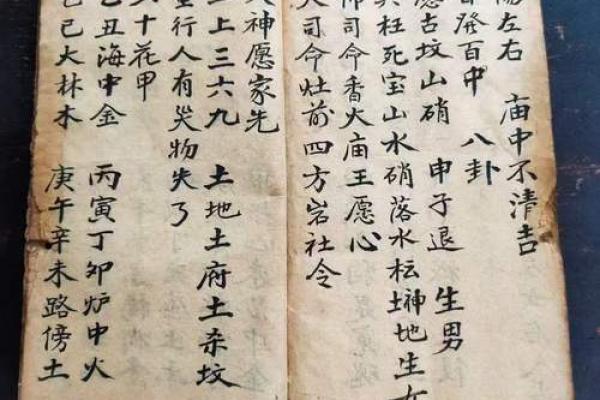 左右 庙中不清吉
發百中 八卦
古坟山硝 申子退 生男
枉死宝山水硝落水坛神地生女
司命香火庙王愿心
大司命灶前四方岩社令
神愿家先
上三六九 土地土府土杀坟
行人有災物失了
十花甲
丑海中金 丙寅丁卯炉中火
己巳大林木 庚午辛未路傍土